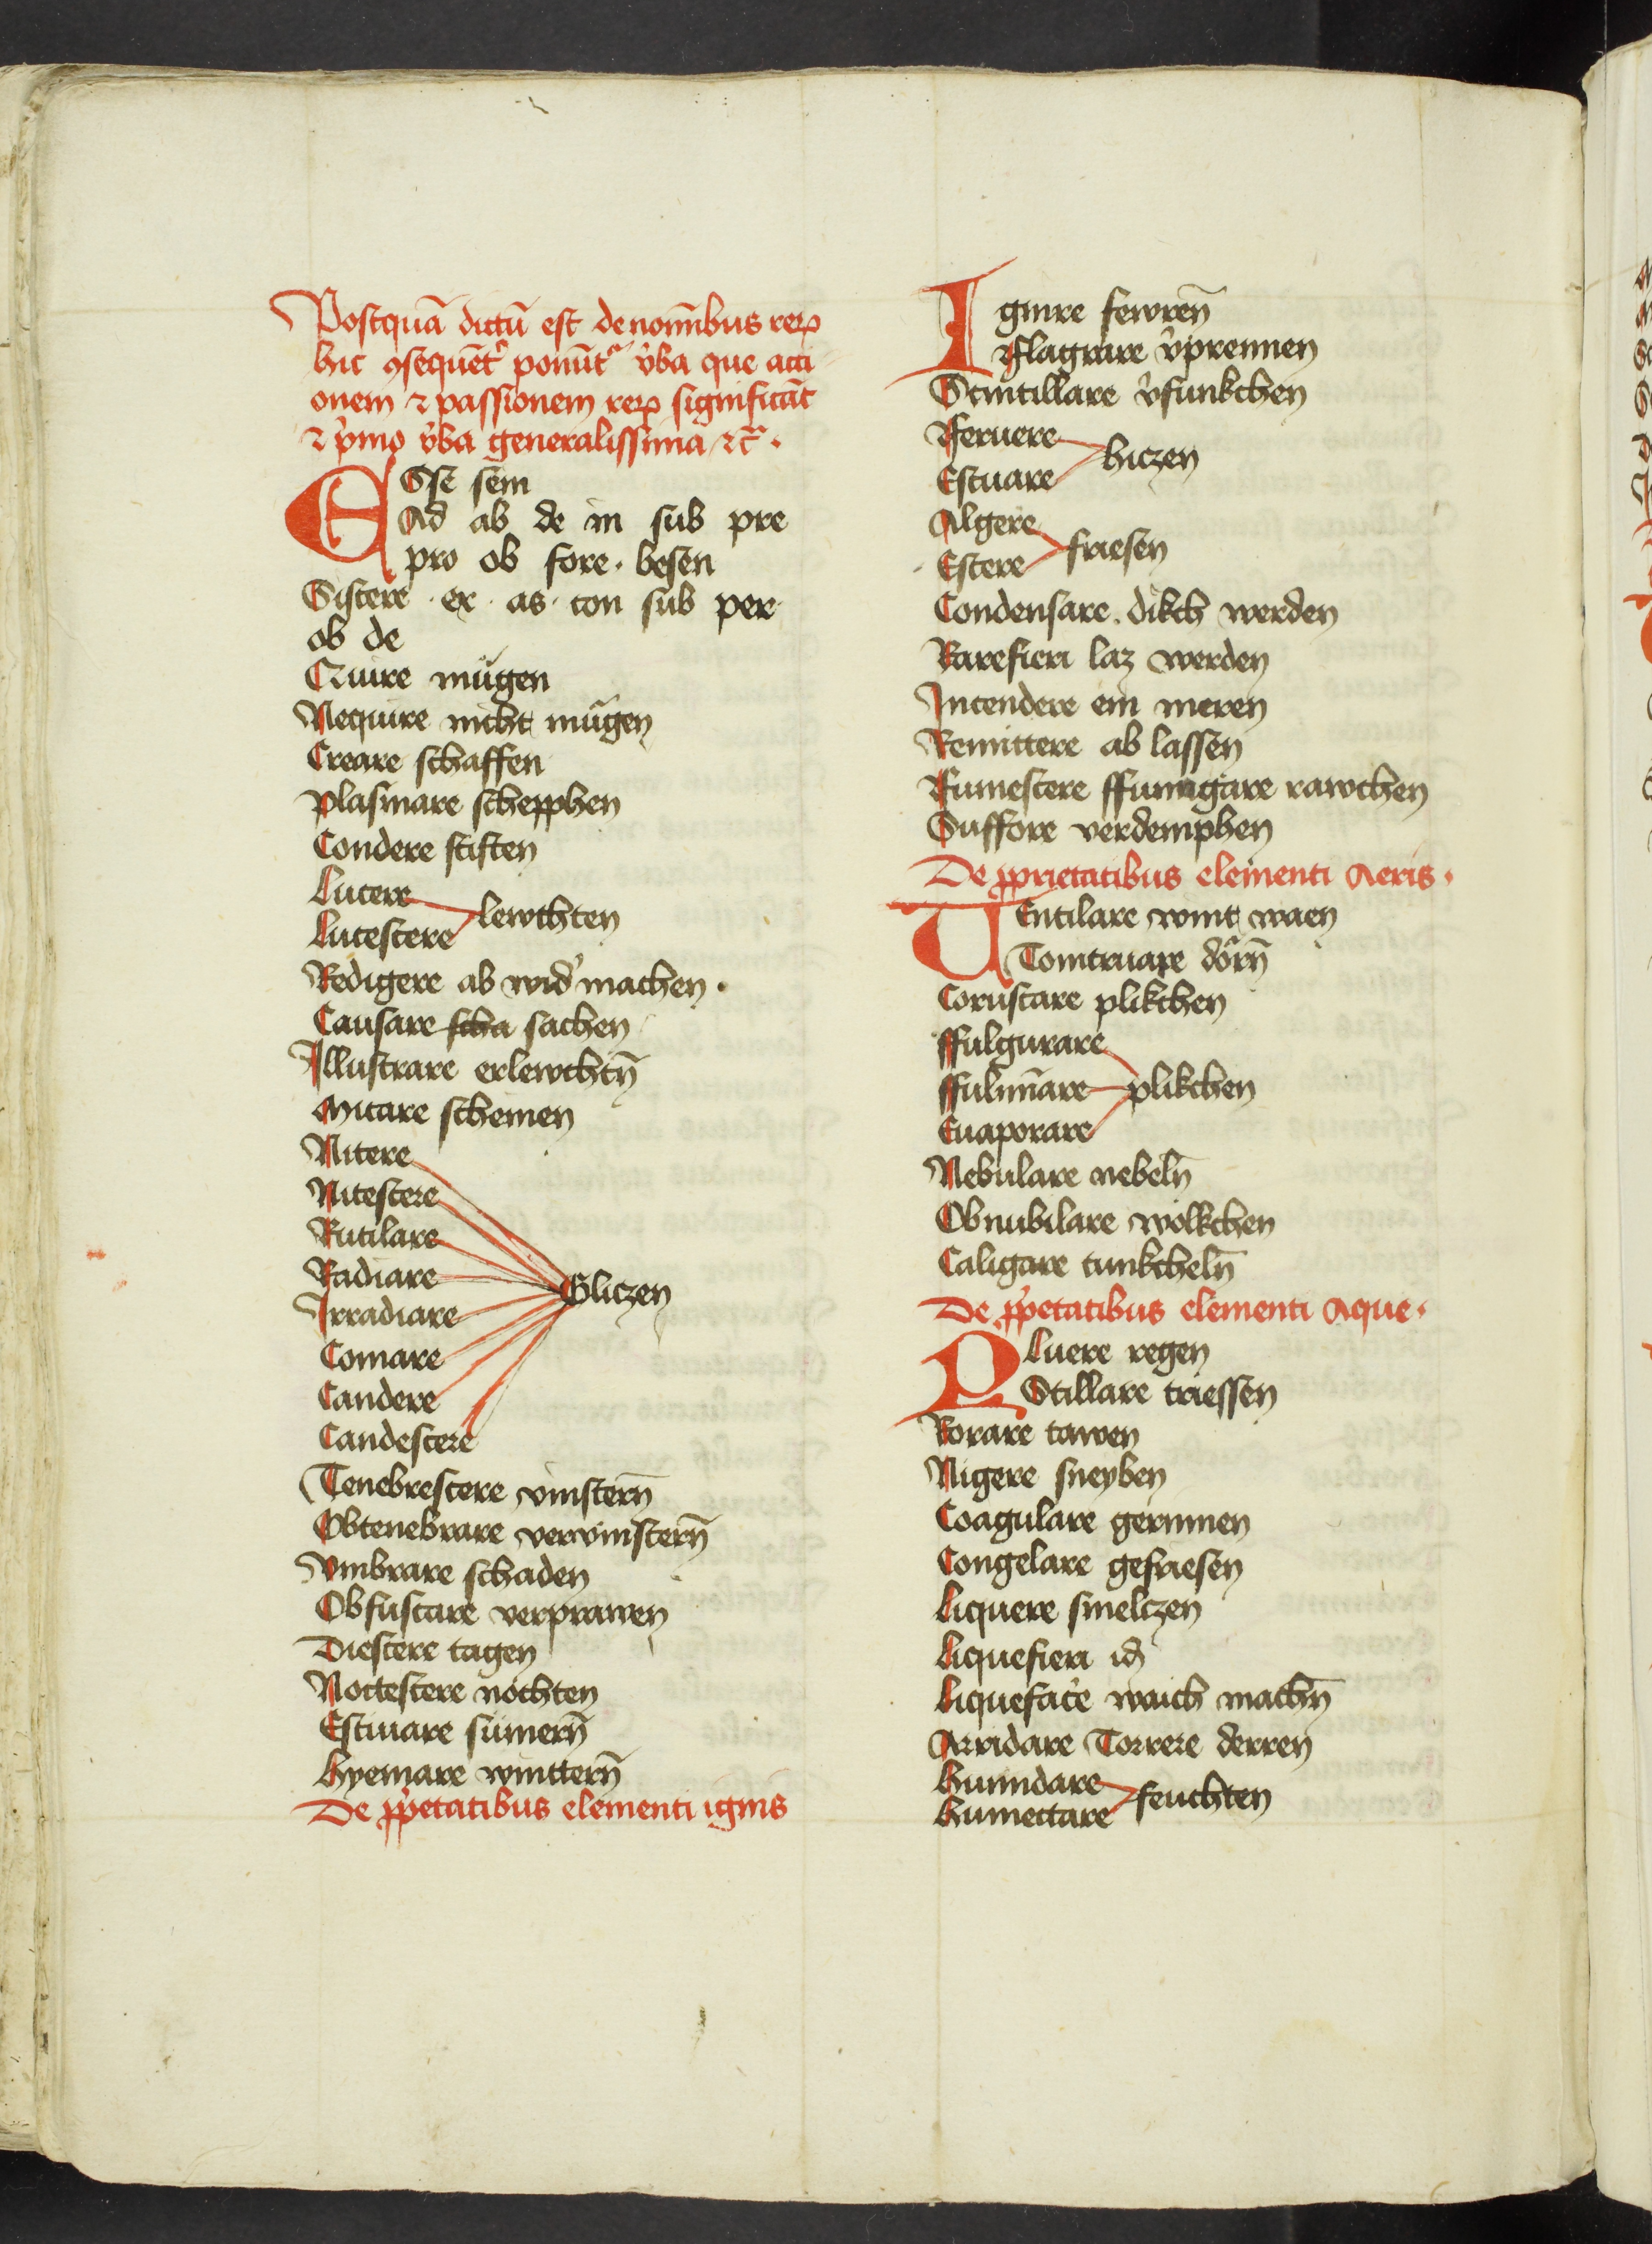 Postquā dictū est de noīnibus rerꝝ
hic ꝯsequēt᷑ ponūt᷑ v̓ba que acti
onem ⁊ passionem rerꝝ significāt
⁊ p̓mo v̓ba generalissima ⁊c̄ .
ESse sein
Ad ab de in sub pre
pro ob fore . besen
Sistere . ex . as . con sub per
ob de
Quire mügen
Nequire nicht mügen
Creare schaffen
Plasmare schepphen
Condere stiften
Lucere
Lucescere lewchten
Redigere ab wid̓ machen .
Causare scha sachen
Illustrare erlewchtn̄
Micare scheinen
Nitere
Nitescere
Rutilare
Radiare
Irradiare Gliczen
Comare
Candere
Candescere
Tenebrescere vinstern̄
Obtenebrare vervinstern̄
Vmbrare schaden
Obfuscare verprawen
Diescere tagen
Noctescere nöchten
Estiuare sümern̄
Hyemare wintern̄
De ꝓp̓etatibus elementi ignis
Ignire fewren̄
Fflagrare v̓prennen
Scintillare v̓funkchen
Feruere
Estuare hiczen
Algere
Estere friesen
Condensare . dikch werden
Rarefieri laz werden
Intendere ein meren
Remittere ab lassen
Fumescere ffumigare rawchen
Suffore verdemphen
De ꝓprietatibus elementi Aeris .
VEntilare wint waen
Tonitruare dôrn̄
Coruscare plikchen
Ffulgurare
Ffulmīare plikchen
Euaporare
Nebulare nebeln̄
Obnubilare wolkchen
Caligare tunkcheln̄
De ꝓp̓etatibus elementi Aque .
PLuere regen
Stillare triessen
Rorare tawen
Nigere sneyben
Coagulare gerinnen
Congelare gefriesen
Liquere smelczen
Liquefieri id̄
Liquefac̓e waich machn̄
Arridare Torrere derren
Humidare
Humectare feuchten